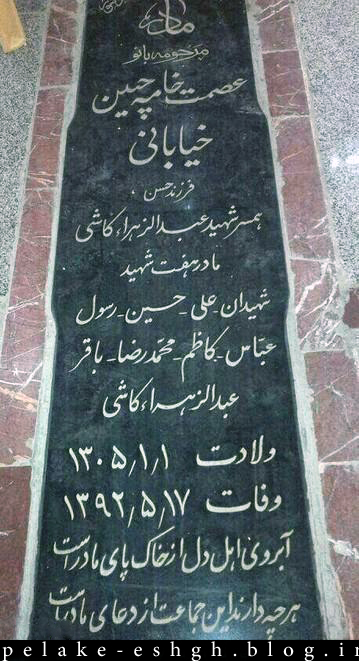 مادر
مرحومه بانو
عصمت خامه چین
خیابانی
فرزند حسن
همسر شهید عبدالزهراء کاشی
مادر هفت شهید
شهیدان علی - حسین - رسول
عبّاس - کاظم - محمّدرضا - باقر
عبدالزهراء کاشی
ولادت ۱۳۰۵/۱/۱
وفات ۱۳۹۲/۵/۱۷
آبروی اهل دل از خاک پای مادر است
هرچه دارند این جماعت از دعای مادر است
pelake-eshgh.blog.ir